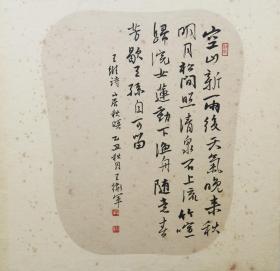 空山新雨後天氣晚來秋
明月松間照清泉石上流竹喧
歸浣女蓮動下漁舟隨意春
芳歇王孫自可留
王維詩山居秋暝乙丑秋月王衛軍